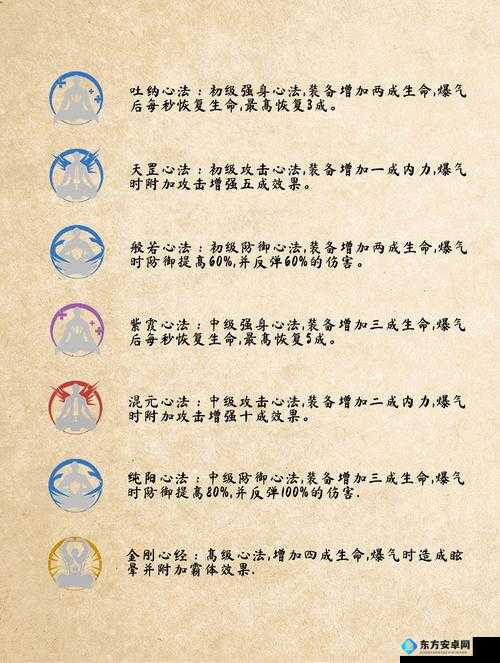 吐纳心法：初级强身心法,装备增加两成生命,爆气
后每秒恢复生命,最高恢复3成。
天罡心法：初级攻击心法,装备增加一成内力,爆气
时附加攻击增强五成效果。
般若心法：初级防御心法,装备增加两成生命,爆气
时防御提高60%,并反弹60%的伤害。
紫霞心法：中级强身心法,装备增加三成生命,爆气
后每秒恢复生命,最高恢复5成。
混元心法：中级攻击心法,装备增加二成内力,爆气
时附加攻击增强十成效果。
纯阳心法：中级防御心法,装备增加三成生命,爆气
时防御提高80%,并反弹100%的伤害.
金刚心经：高级心法,增加四成生命,爆气时造成眩
晕并附加霸体效果.
东方安卓网